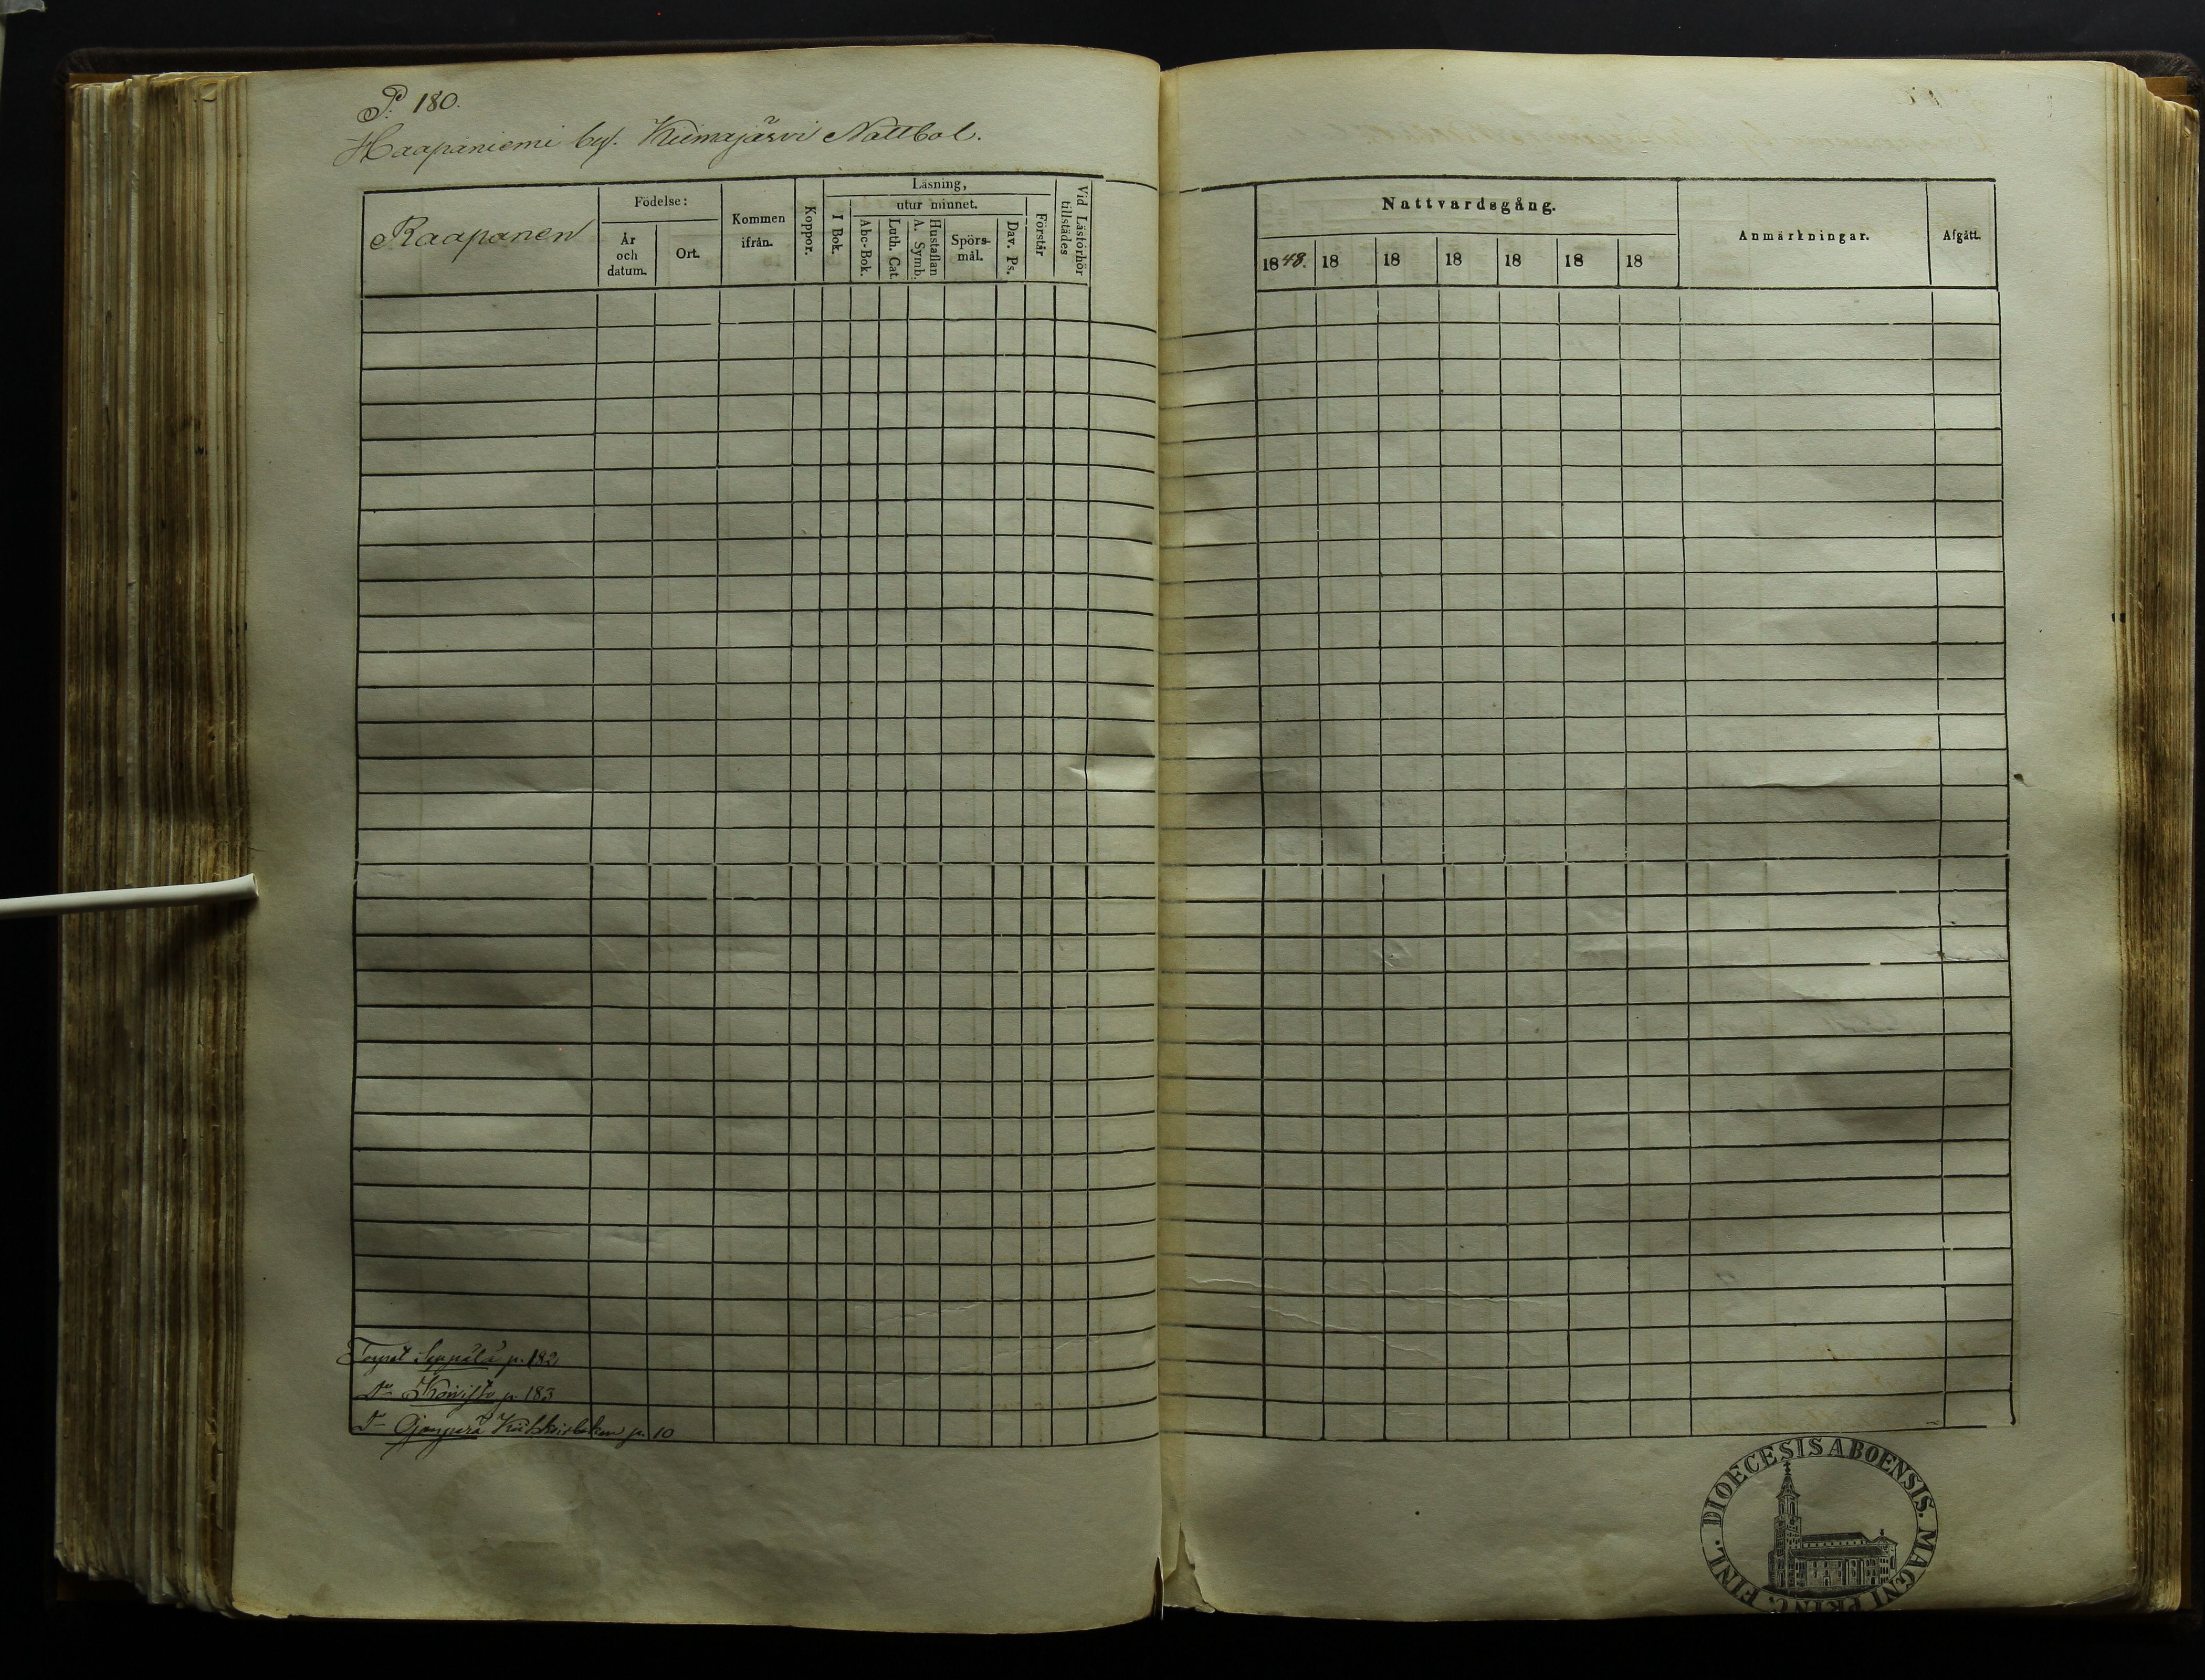 P. 180.
Haapaniemi by. Kiimajärvi Nattbol.
Raapanen
Födelse:
År
och
datum.
Ort.
Kommen
ifrån.
Koppor.
Läsning,
I Bok.
utur minnet.
Abc-Bok.
Luth. Cat.
Hustaflan
A. Symb.
Spörs-
mål.
Dav. Ps.
Förstår
Vid Läsförhör
tillstädes
Nattvardsgång.
1848. 18 18 18 18 18 18
Anmärkningar.
Afgått.
Torpet Seppälä p. 182
Do Koivisto p. 183
Do Ojanperä p. 10
DIOECESIS ABOENSIS. MAGNI PRINC. FINL.